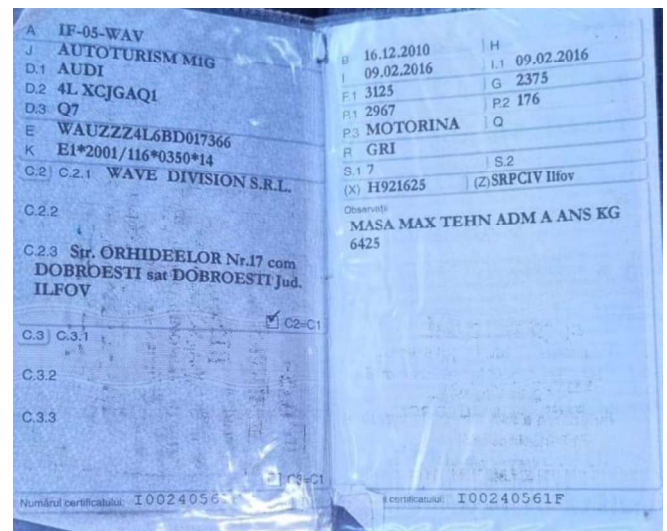 A IF-05-WAV
J AUTOTURISM M1G
D.1 AUDI
D.2 4L XCJGAQ1
D.3 Q7
E WAUZZZ4L6BD017366
K E1*2001/116*0350*14
C.2) C.2.1 WAVE DIVISION S.R.L.
C.2.2
C.2.3 Str. ORHIDEELOR Nr.17 com
DOBROESTI sat DOBROESTI Jud.
ILFOV
C2=C1
C.3) C.3.1
C.3.2
C.3.3
C3=C1
Numărul certificatului: I0024056
B 16.12.2010 H
I 09.02.2016 I.1 09.02.2016
F.1 3125 G 2375
P.1 2967 P.2 176
P.3 MOTORINA Q
R GRI
S.1 7 S.2
(X) H921625 (Z) SRPCIV Ilfov
Observații
MASA MAX TEHN ADM A ANS KG
6425
certificatului: I00240561F